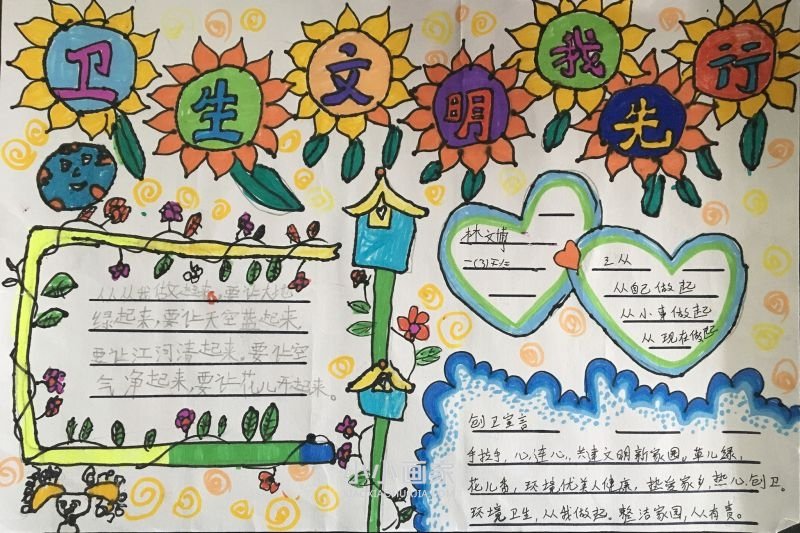 卫生文明我先行
林文博
一(3)班
三从
从自己做起
从小事做起
从现在做起
从从我做起来,要让大地
绿起来,要让天空蓝起来
要让江河清起来,要让空
气净起来,要让花儿开起来。
创卫宣言
手拉手,心连心,共建文明新家园。草儿绿,
花儿香,环境优美人健康,热爱家乡,热心创卫。
环境卫生,从我做起。整洁家园,人有责。
小小画家
XIAOXIAOHUAJIA.COM